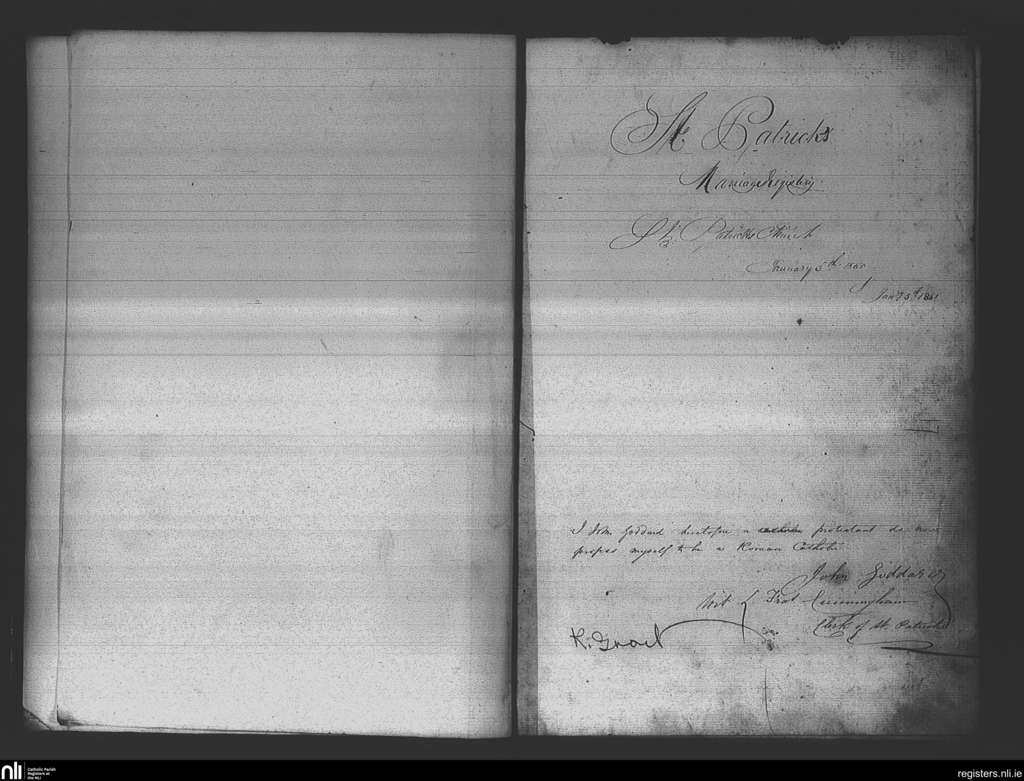 St Patricks
Marriage Registry.
St Patricks Church
January 5th 1860
Jany 5th 1861
I John Goddard heretofore a catholic protestant do now
profess myself to be a Roman Catholic
John Goddard
Wit Frat Cunningham
Clerk of St Patricks
K. Graol
nli Catholic Parish
Registers at
the NLI
registers.nli.ie